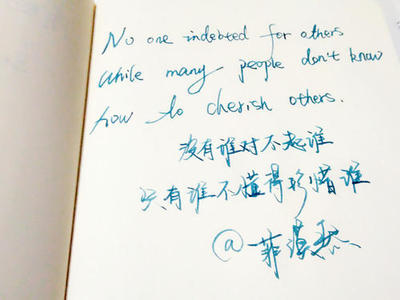 No one indebted for others
while many people don't know
how to cherish others.
没有谁对不起谁
只有谁不懂得珍惜谁
@一菲漠然